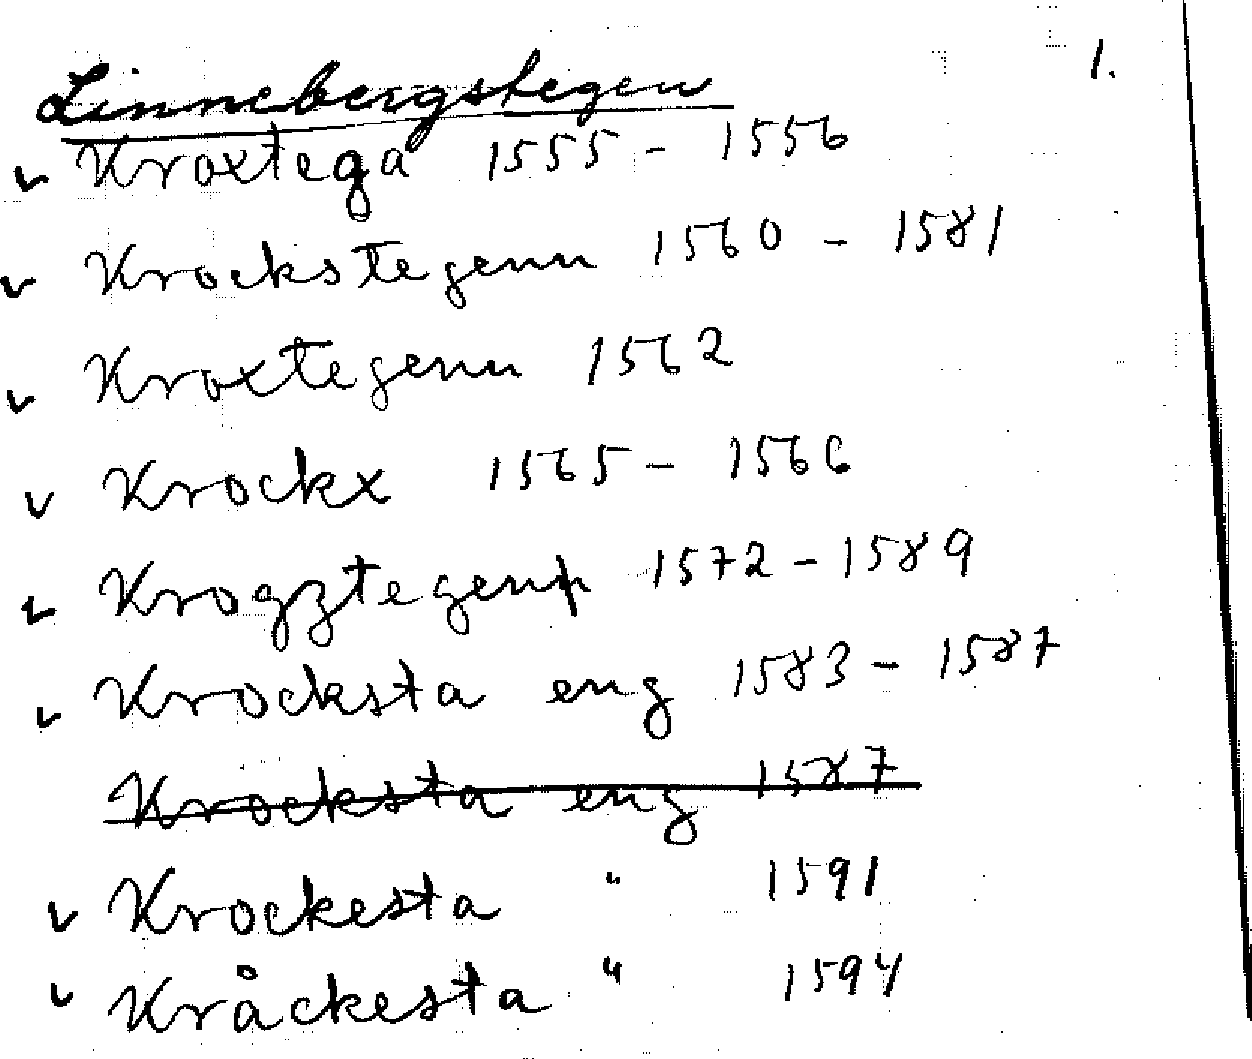 1.
Linnebergstegen
v Kroxtega 1555 - 1556
v Krockstegenn 1560 - 1581
v Kroxtegenn 1562
v Krockx 1565 - 1566
v Krogztegenn 1572 - 1589
v Krocksta eng 1583 - 1587
Krocksta eng 1587
v Krockesta " 1591
v Kråckesta " 1594